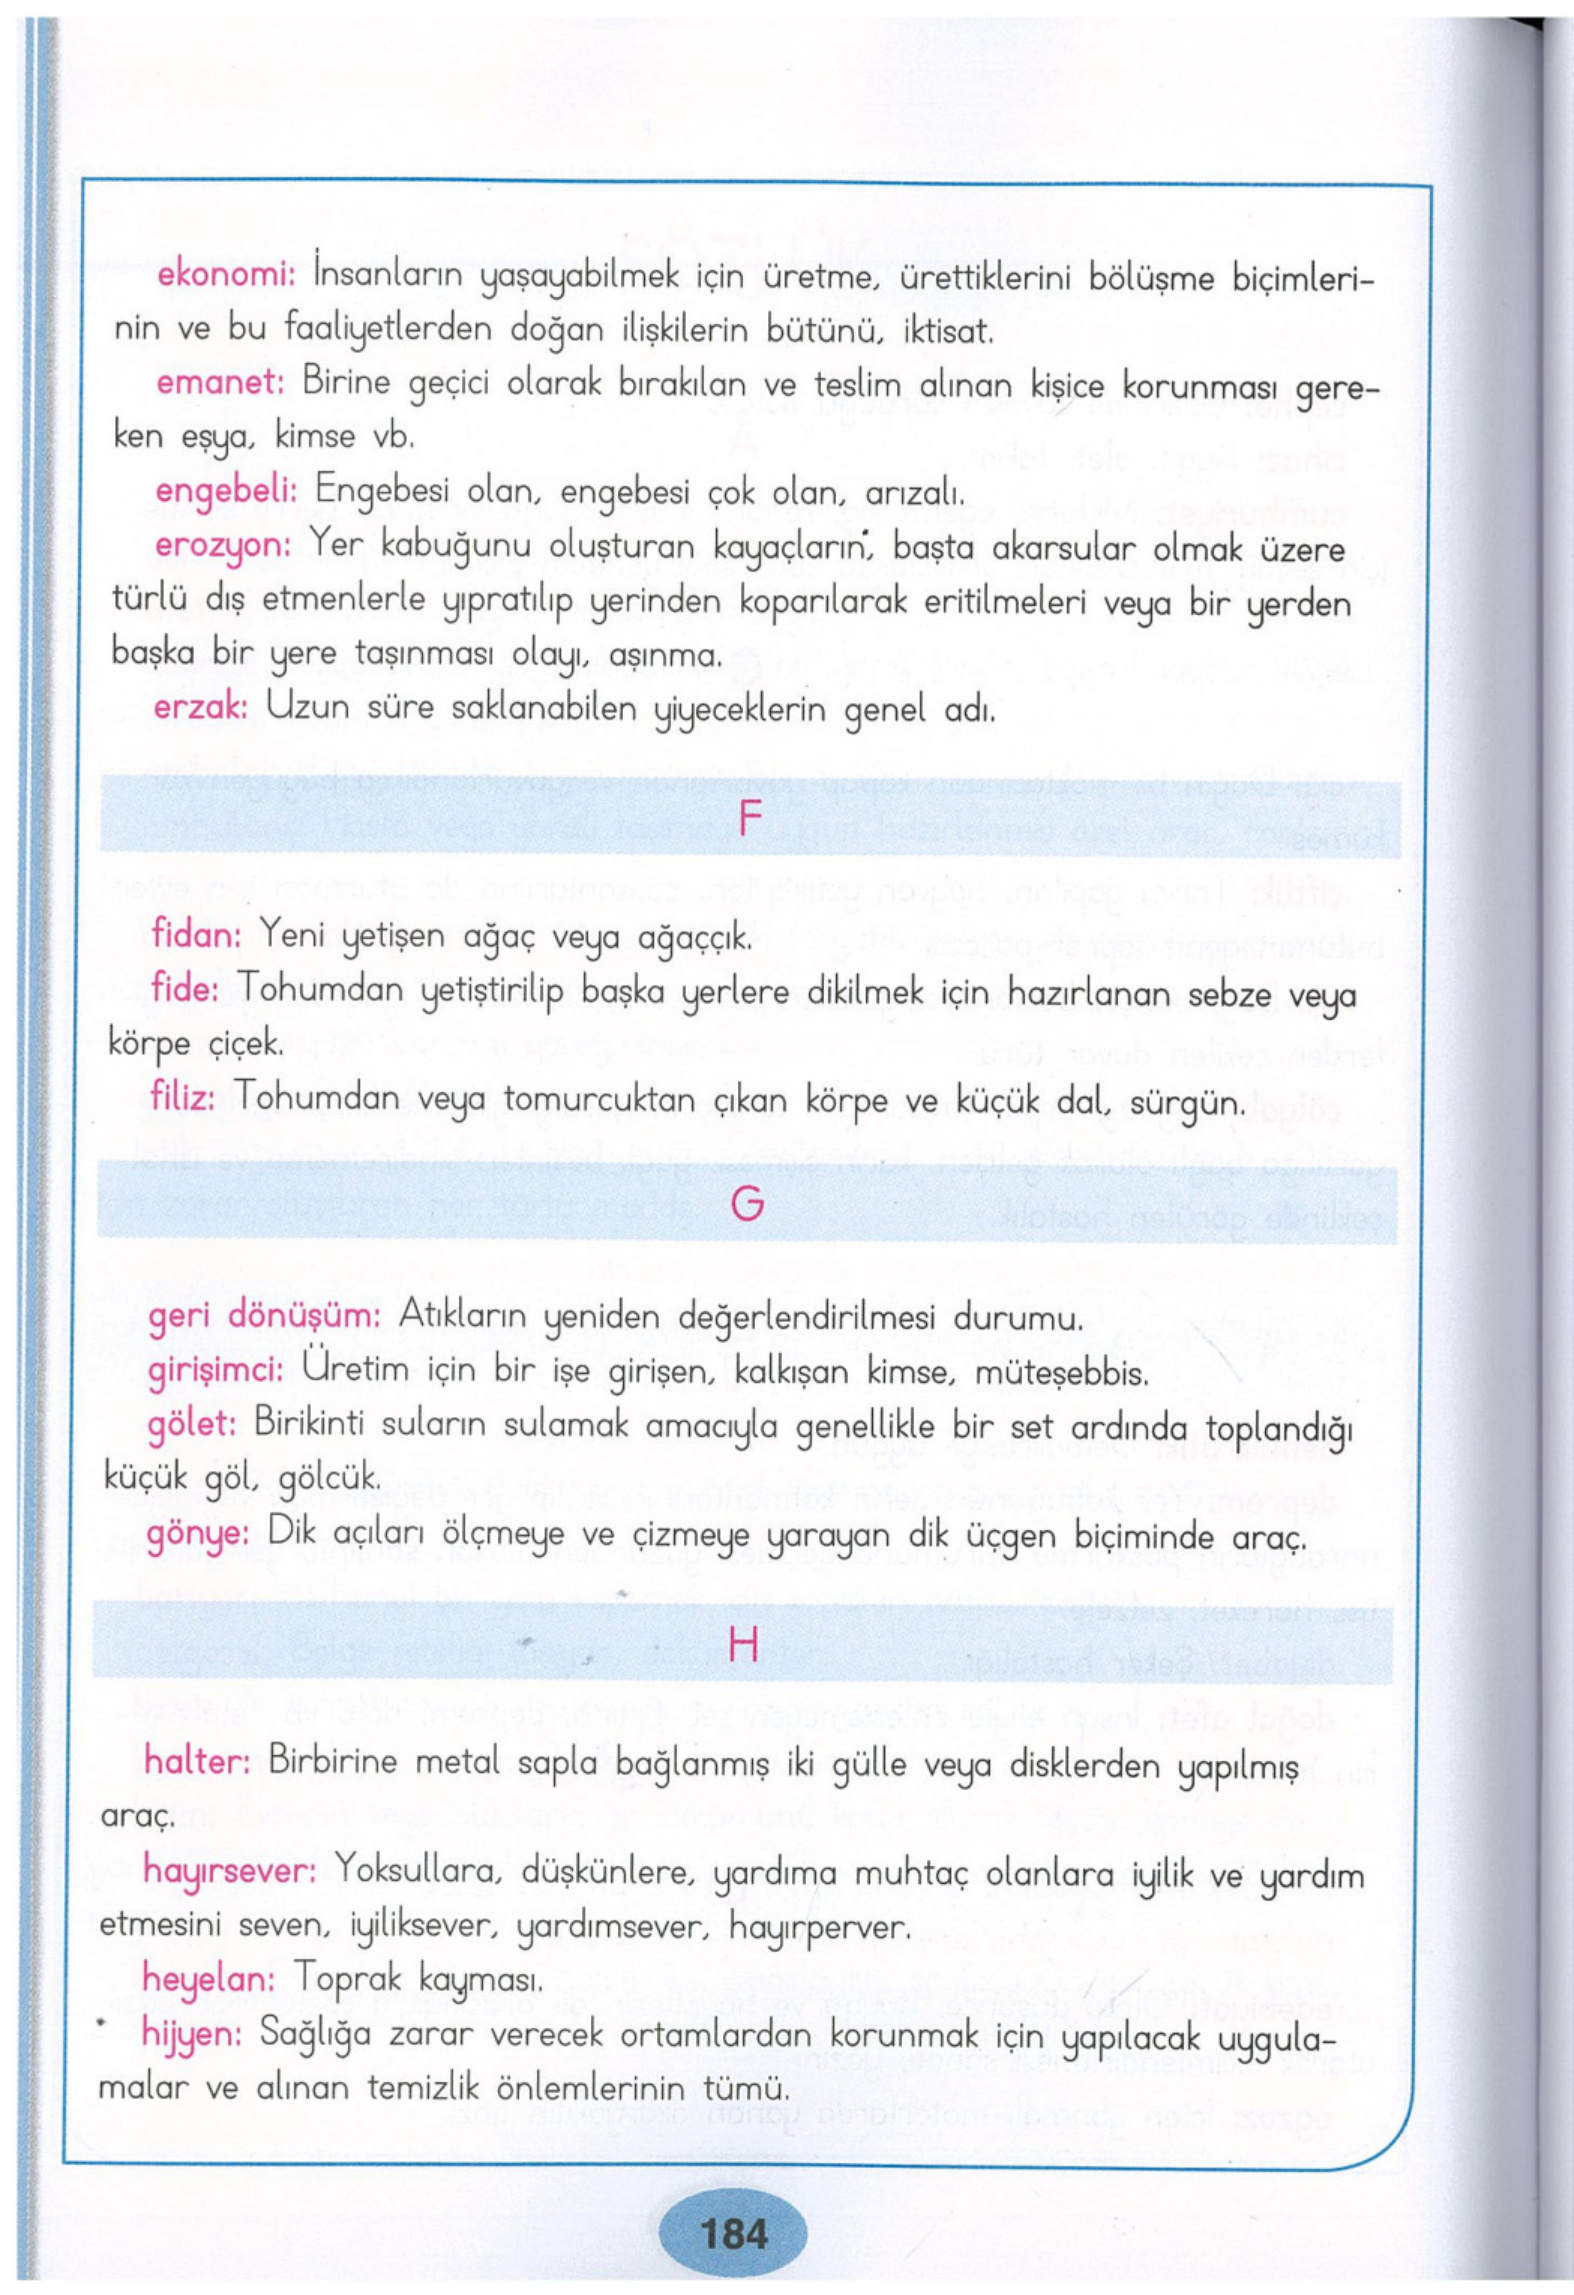 ekonomi: İnsanların yaşayabilmek için üretme, ürettiklerini bölüşme biçimleri-
nin ve bu faaliyetlerden doğan ilişkilerin bütünü, iktisat.
emanet: Birine geçici olarak bırakılan ve teslim alınan kişice korunması gere-
ken eşya, kimse vb.
engebeli: Engebesi olan, engebesi çok olan, arızalı.
erozyon: Yer kabuğunu oluşturan kayaçların, başta akarsular olmak üzere
türlü dış etmenlerle yıpratılıp yerinden koparılarak eritilmeleri veya bir yerden
başka bir yere taşınması olayı, aşınma.
erzak: Uzun süre saklanabilen yiyeceklerin genel adı.
F
fidan: Yeni yetişen ağaç veya ağaççık.
fide: Tohumdan yetiştirilip başka yerlere dikilmek için hazırlanan sebze veya
körpe çiçek.
filiz: Tohumdan veya tomurcuktan çıkan körpe ve küçük dal, sürgün.
G
geri dönüşüm: Atıkların yeniden değerlendirilmesi durumu.
girişimci: Üretim için bir işe girişen, kalkışan kimse, müteşebbis.
gölet: Birikinti suların sulamak amacıyla genellikle bir set ardında toplandığı
küçük göl, gölcük.
gönye: Dik açıları ölçmeye ve çizmeye yarayan dik üçgen biçiminde araç.
H
halter: Birbirine metal sapla bağlanmış iki gülle veya disklerden yapılmış
araç.
hayırsever: Yoksullara, düşkünlere, yardıma muhtaç olanlara iyilik ve yardım
etmesini seven, iyiliksever, yardımsever, hayırperver.
heyelan: Toprak kayması.
hijyen: Sağlığa zarar verecek ortamlardan korunmak için yapılacak uygula-
malar ve alınan temizlik önlemlerinin tümü.
184